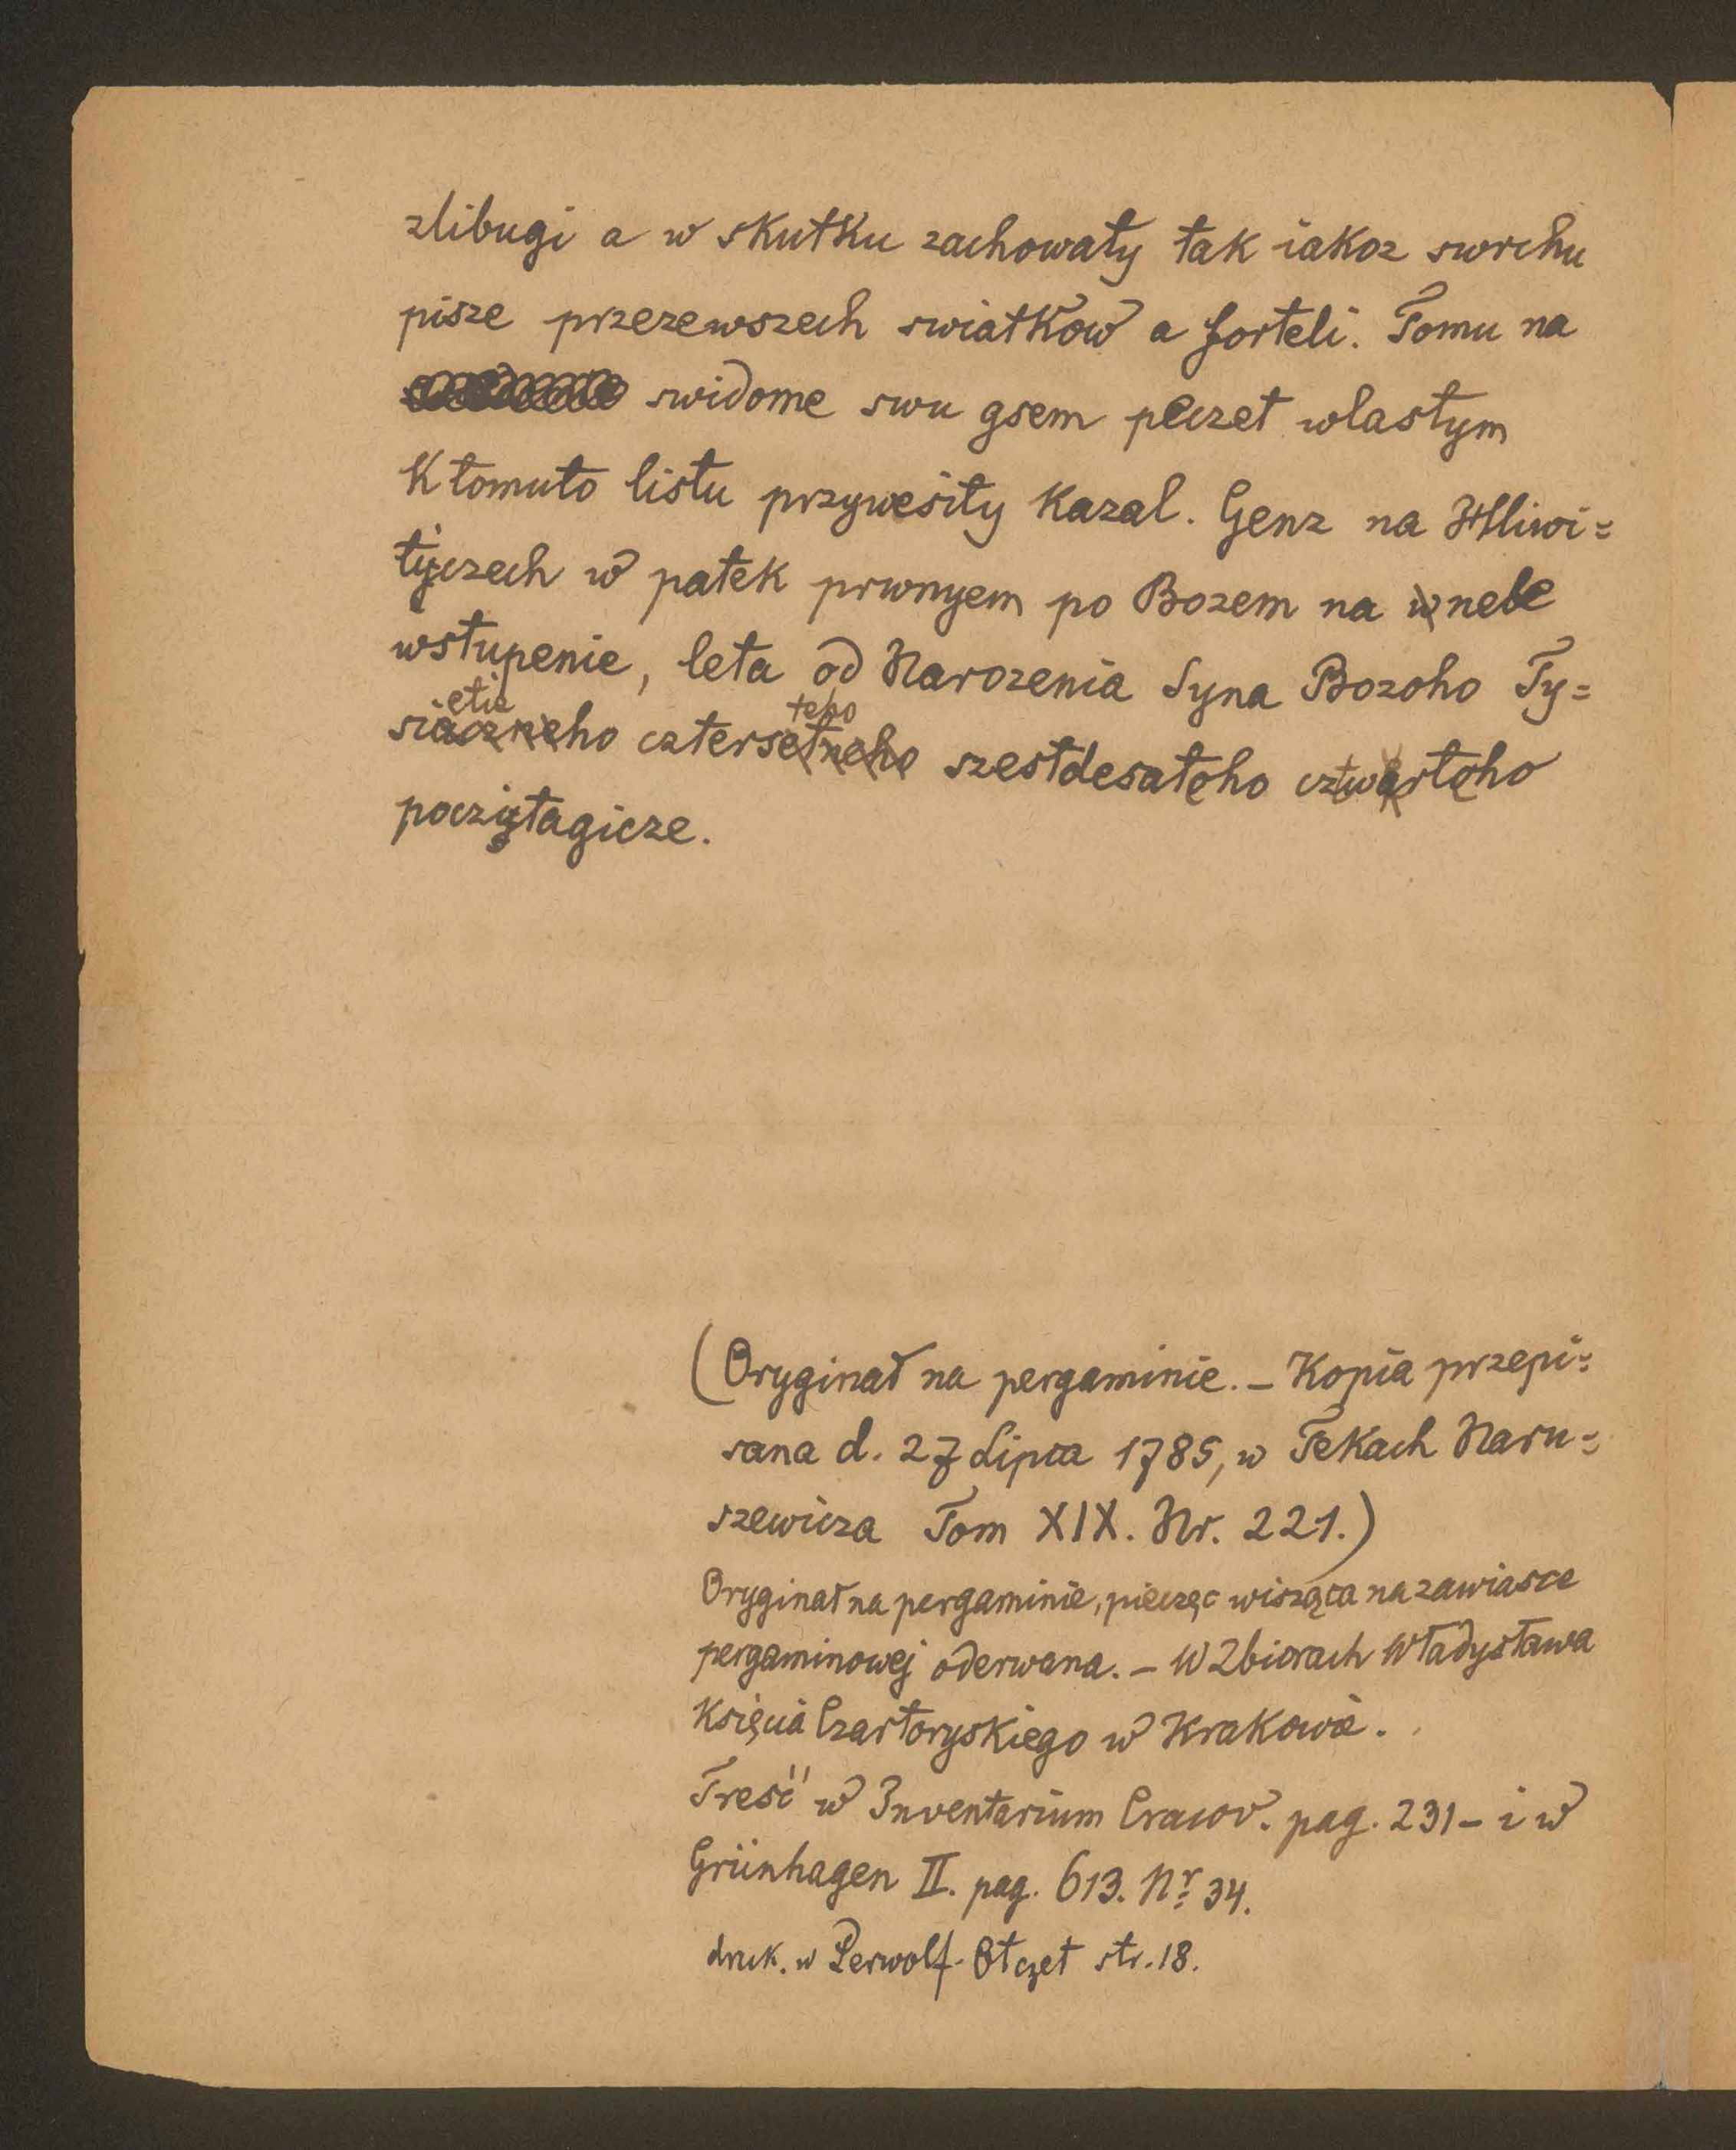 zlibugi a w skutku zachowaty tak iakoz swrchu
pisze przezewszech swiatkow a forteli. Tomu na
swidome swu gsem peczet wlastym
K tomuto listu przywesity Kazal. Genz na Hliwi=
tyczech w patek prwnyem po Bozem na nebe
wstupenie, leta od Narozenia Syna Bozoho Ty=
etie teho
siaczneho cztersetneho szestdesateho cztwrteho
poczytagicze.
(Oryginał na pergaminie. – Kopia przepi=
sana d. 27 Lipca 1785, w Tekach Naru=
szewicza Tom XIX. Nr. 221.)
Oryginał na pergaminie, pieczęc wisząca na zawiasce
pergaminowej oderwana. – W Zbiorach Władysława
Księcia Czartoryskiego w Krakowie.
Treść w Inventarium Cracov. pag. 231 – i w
Grünhagen II. pag. 613. Nr 34.
druk. w Perwolf. Otczet str. 18.